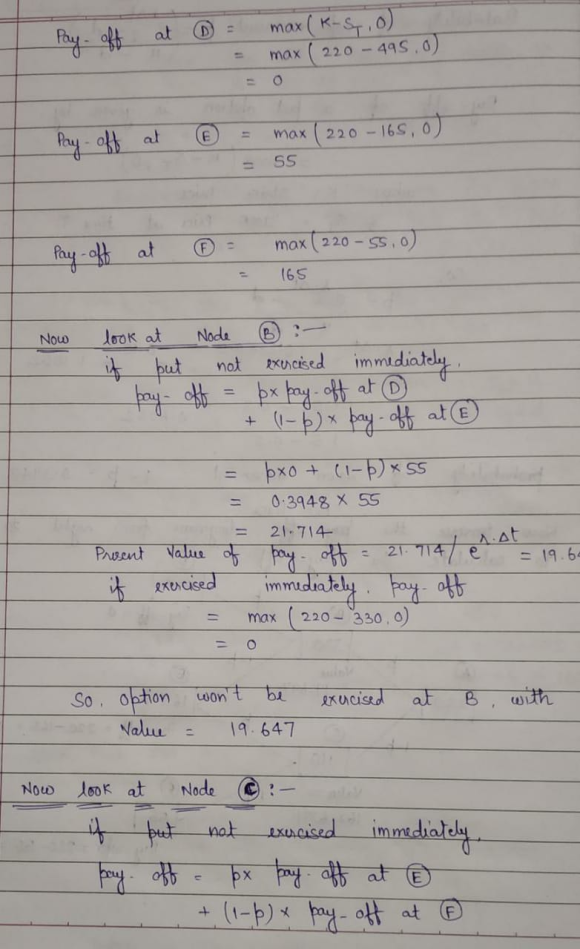 Pay-off at Ⓓ = max(K-S_T, 0)
= max(220-495, 0)
= 0
Pay-off at Ⓔ = max(220-165, 0)
= 55
Pay-off at Ⓕ = max(220-55, 0)
= 165
Now look at Node Ⓑ :-
if put not exercised immediately,
pay-off = p× pay-off at Ⓓ
+ (1-p) × pay-off at Ⓔ
= p×0 + (1-p) × 55
= 0.3948 × 55
= 21.714
Present Value of pay-off = 21.714/e^{r.Δt} = 19.64
if exercised immediately, pay-off
= max(220-330, 0)
= 0
So, option won't be exercised at B, with
Value = 19.647
Now look at Node Ⓒ :-
if put not exercised immediately,
pay-off = p× pay-off at Ⓔ
+ (1-p) × pay-off at Ⓕ